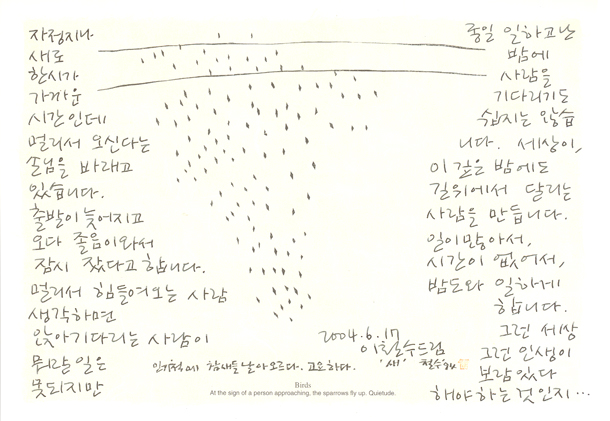 자정지나
새로
한시가
가까운
시간인데
멀리서 오신다는
손님을 바래고
있습니다.
출발이 늦어지고
오다 졸음이와서
잠시 잤다고 합니다.
멀리서 힘들여오는 사람
생각하면
앉아기다리는 사람이
뭐랄 일은
못되지만
종일 일하고난
밤에
사람을
기다리기도
쉽지는 않습
니다. 세상이,
이 깊은 밤에도
길위에서 달리는
사람을 만듭니다.
일이많아서,
시간이 없어서,
밤도와 일하게
합니다.
그런 세상
그런 인생이
보람있다
해야하는것인지…
2004.6.17
이철수드림
인기척에 참새들 날아오르다. 고요하다.
'새' 철수04
Birds
At the sign of a person approaching, the sparrows fly up. Quietude.